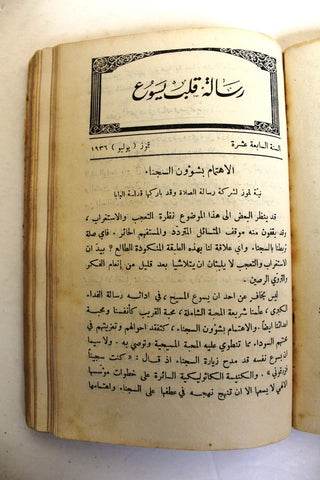 رسالة قلب يسوع
السنة السابعة عشرة
تموز ( يوليو ) ١٩٣٦
الاهتمام بشؤون السجناء
نية تموز لشركة رسالة الصلاة وقد باركها قداسة البابا
قد ينظر البعض الى هذا الموضوع نظرة التعجب والاستغراب ،
وقد يقفون منه موقف المتسائل المتردّد والمستفهم الحائر . فاي صلة
تربطنا بالسجناء ، واي علاقة لنا بهذه الطبقة المنكودة الطالع ? بيد ان
الاستغراب والتعجب لا يلبثان ان يتلاشيا بعد قليل من إنعام الفكر
والتروي الرصين .
ليس بخافٍ عن احد ان يسوع المسيح ، في ادائه رسالة الفداء
الكبرى ، علّمنا شريعة المحبة الشاملة ، محبة القريب كأنفسنا ومحبة
اعدائنا ايضاً . والاهتمام بشؤون السجناء ، كتفقد احوالهم وتعزيتهم في
محنتهم السوداء مما تنطوي عليه المحبة المسيحية وتوصي به . ولا سيما
ان يسوع نفسه قد مدح زيارة السجناء اذ قال : « كنت سجيناً
فزرتموني » . والكنيسة الكاثوليكية السائرة على خطوات مؤسّسها
الالهي لا يسعها الا ان تنهج نهجه في عطفها على السجناء واهتمامها